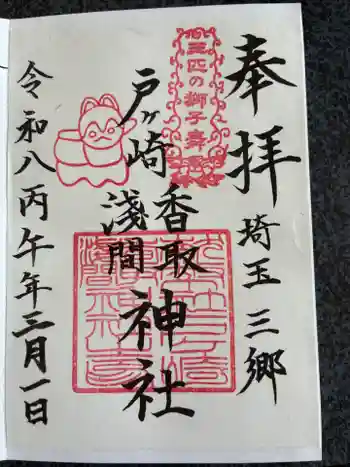 奉拝
埼玉三郷
三匹の獅子舞
戸ヶ崎
香取
浅間
神社
令和八丙午年三月一日